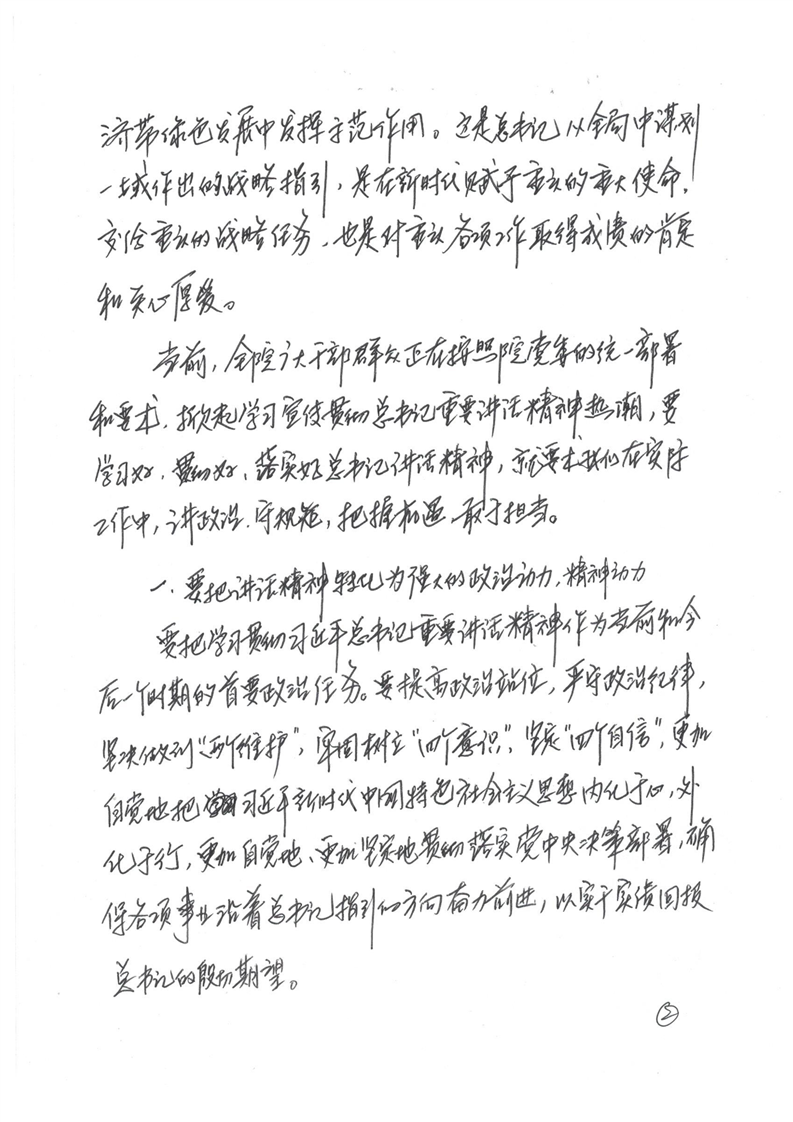 济带绿色发展中发挥示范作用。这是总书记从全局中谋划
一域作出的战略指引，是在新时代赋予重庆的重大使命，
交给重庆的战略任务，也是对重庆各项工作取得成绩的肯定
和关心厚爱。
当前，全院广大干部群众正在按照院党委的统一部署
和要求，掀起学习宣传贯彻总书记重要讲话精神热潮，要
学习好、贯彻好、落实好总书记讲话精神，就要求我们在实际
工作中，讲政治、守规矩，把握机遇、敢于担当。
一、要把讲话精神转化为强大的政治动力，精神动力
要把学习贯彻习近平总书记重要讲话精神作为当前和今
后一个时期的首要政治任务。要提高政治站位，严守政治纪律，
坚决做到“两个维护”，牢固树立“四个意识”，坚定“四个自信”，更加
自觉地把习近平新时代中国特色社会主义思想内化于心，外
化于行，更加自觉地、更加坚实地贯彻落实党中央决策部署，确
保各项事业沿着总书记指引的方向奋力前进，以实干实绩回报
总书记的殷切期望。
②